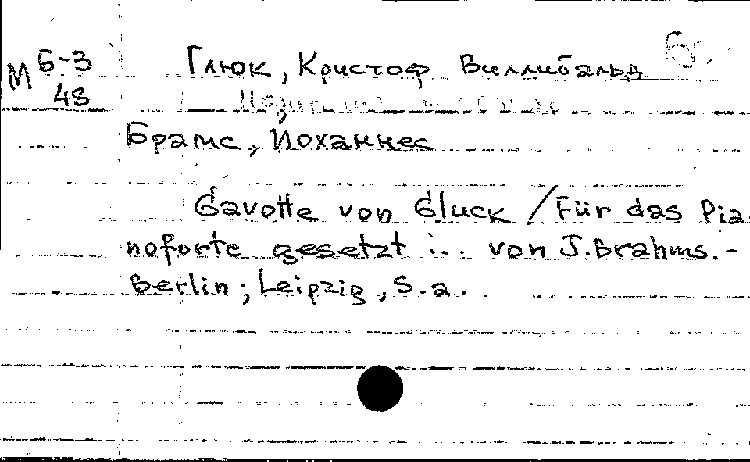 М 6-3
48
Глюк, Кристоф Виллибальд
Брамс, Йоханнес
Gavotte von Gluck / Für das Pia-
noforte gesetzt ... von J. Brahms. -
Berlin; Leipzig, s.a.